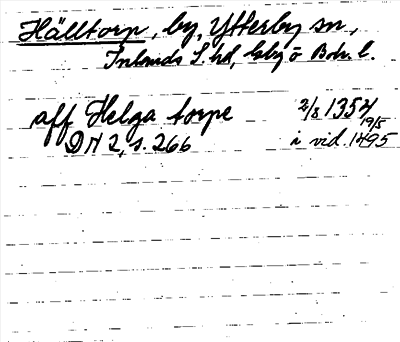 Hälltorp, by, Ytterby sn,
Inlands S. hd, Gbg o Boh. l.
aff Helga torpe 2/8 1354
DN 2, s. 266 i vid. 19/5 1495